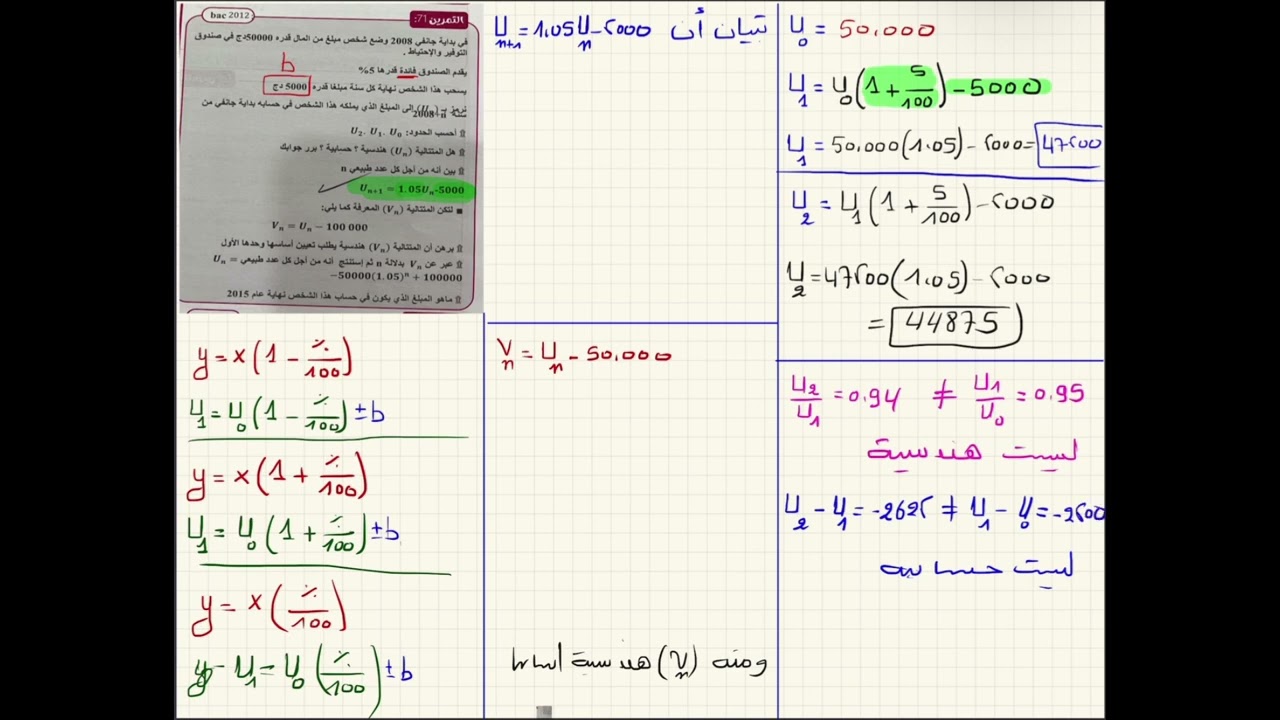 bac 2012
التمرين 71:
في بداية جانفي 2008 وضع شخص مبلغ من المال قدره 50000دج في صندوق
التوفير والإحتياط .
b
يقدم الصندوق فائدة قدرها 5%
يسحب هذا الشخص نهاية كل سنة مبلغا قدره 5000 دج
نرمز بـ (Uₙ) إلى المبلغ الذي يملكه هذا الشخص في حسابه بداية جانفي من
سنة 2008+n
أحسب الحدود: U₂، U₁، U₀
هل المتتالية (Uₙ) هندسية ؟ حسابية ؟ برر جوابك
بين أنه من أجل كل عدد طبيعي n
Uₙ₊₁ = 1.05Uₙ-5000
لتكن المتتالية (Vₙ) المعرفة كما يلي:
Vₙ = Uₙ − 100 000
برهن أن المتتالية (Vₙ) هندسية يطلب تعيين أساسها وحدها الأول
عبر عن Vₙ بدلالة n ثم إستنتج أنه من أجل كل عدد طبيعي Uₙ =
−50000(1.05)ⁿ + 100000
ماهو المبلغ الذي يكون في حساب هذا الشخص نهاية عام 2015
y = x(1 − %/100)
U₁ = U₀(1 − %/100) ± b
y = x(1 + %/100)
U₁ = U₀(1 + %/100) ± b
y = x(%/100)
y U₁ = U₀(%/100) ± b
تبيان أن Uₙ₊₁ = 1.05Uₙ − 5000
Vₙ = Uₙ − 50.000
ومنه (Vₙ) هندسية أساسها
U₀ = 50.000
U₁ = U₀(1 + 5/100) − 5000
U₁ = 50.000(1.05) − 5000 = 47500
U₂ = U₁(1 + 5/100) − 5000
U₂ = 47500(1.05) − 5000
= 44875
U₂/U₁ = 0.94 ≠ U₁/U₀ = 0.95
ليست هندسية
U₂ − U₁ = −2625 ≠ U₁ − U₀ = −2500
ليست حسابية